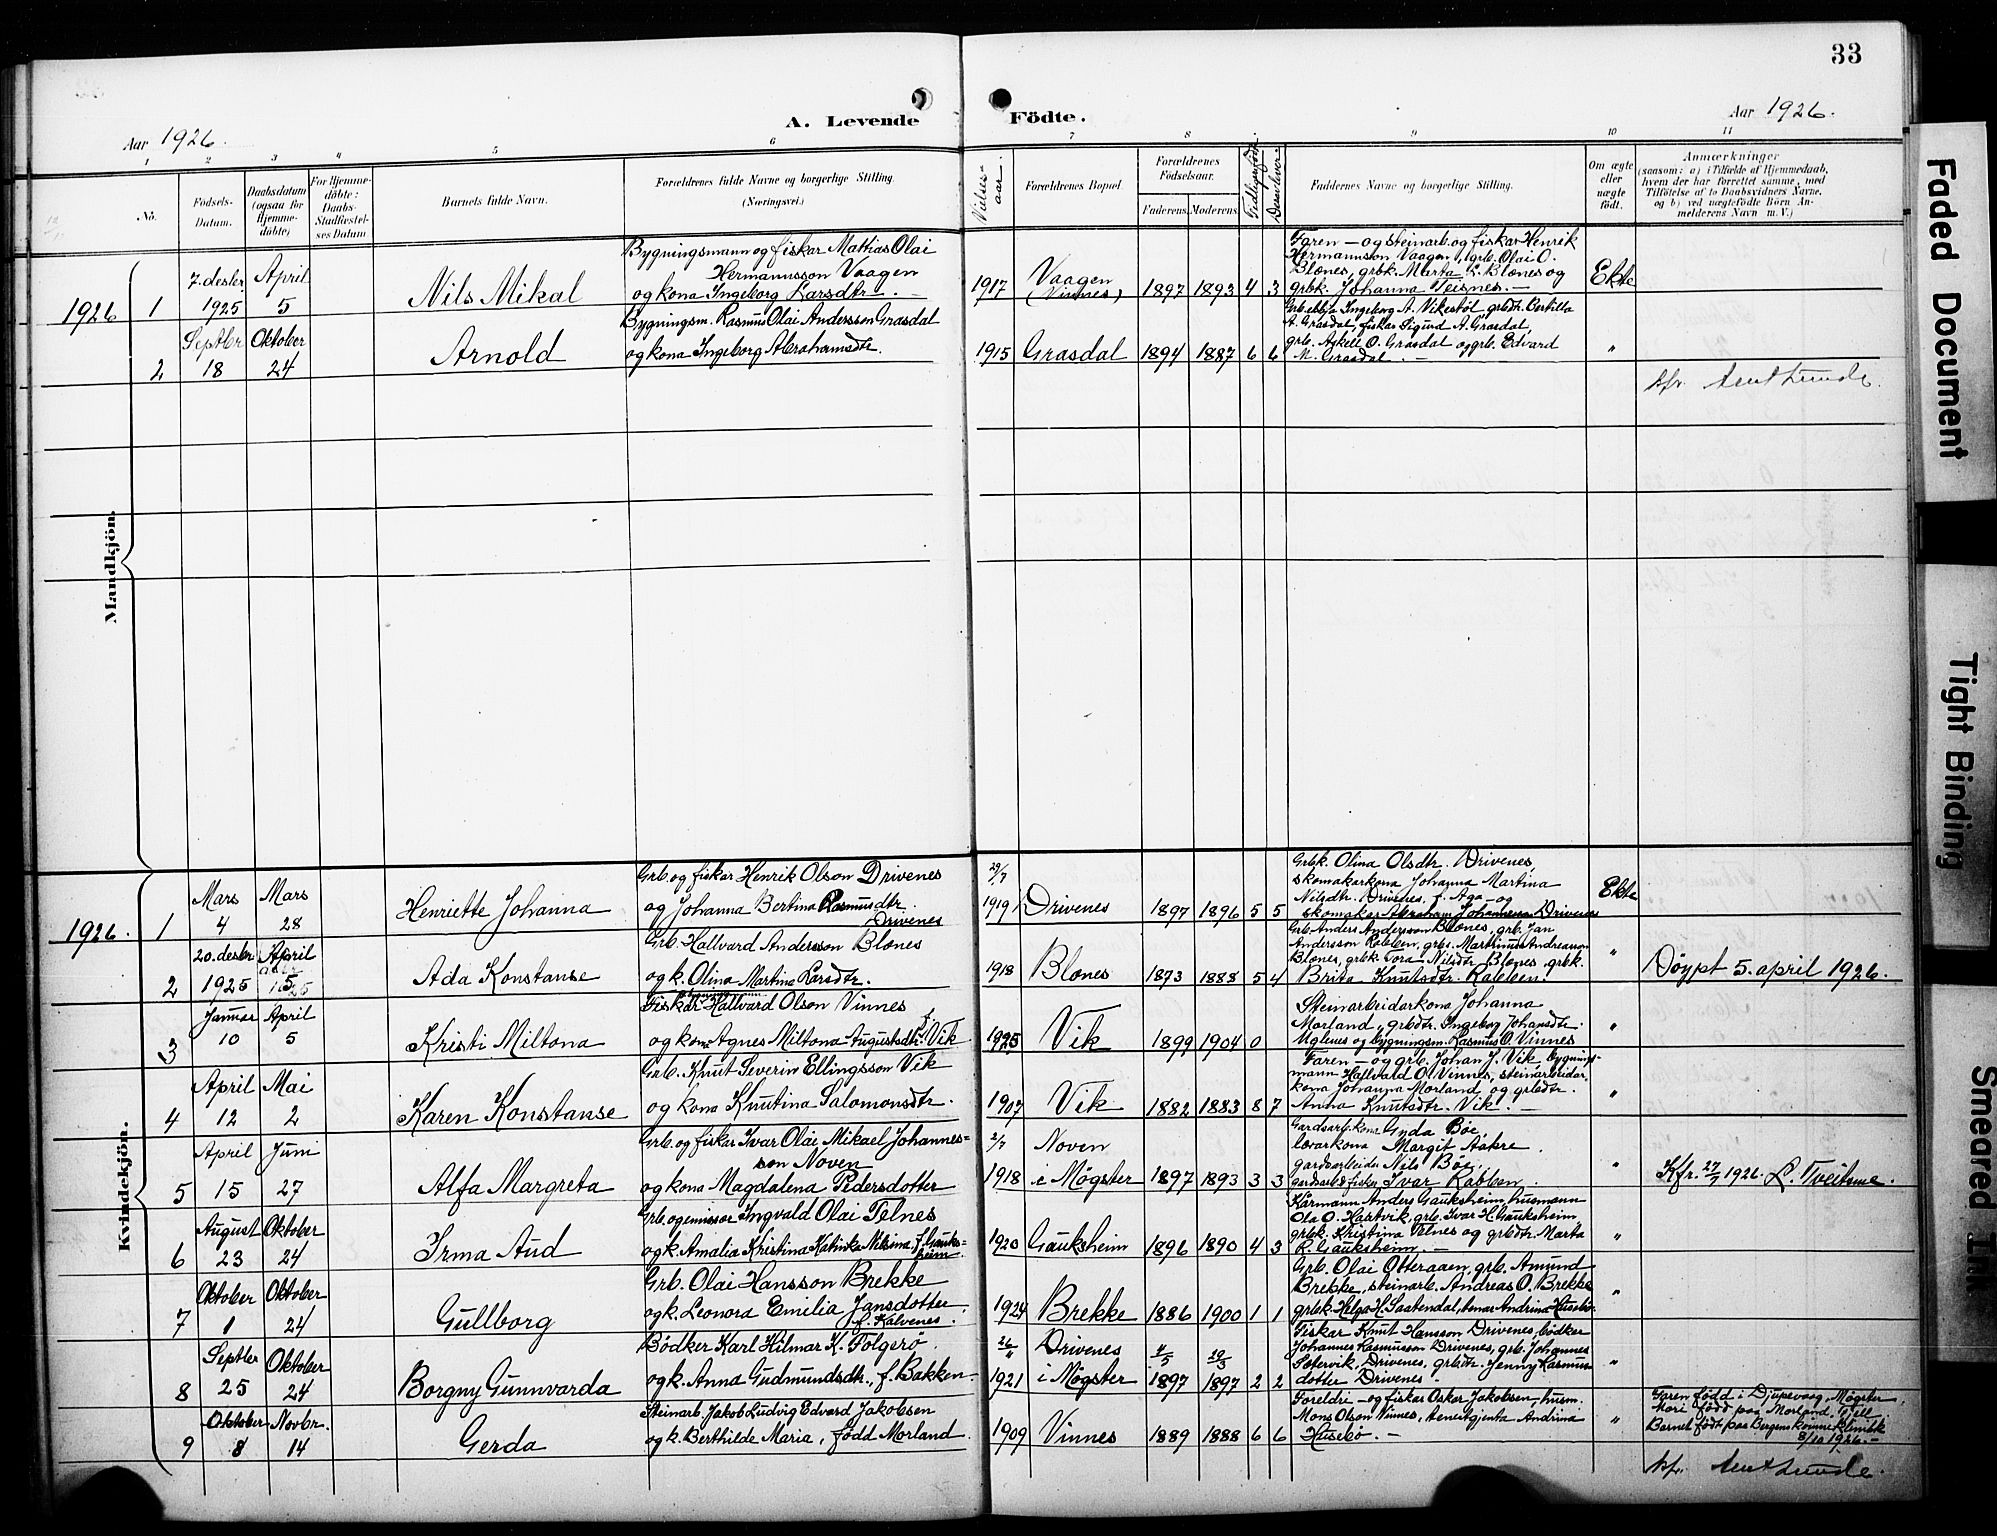 33
A. Levende Födte.
Aar 1926.
Aar 1926.
1 2 3 4 5 6 7 8 9 10 11
No.
Födsels-Datum.
Daabsdatum (ogsaa for Hjemme-döbte)
For Hjemme-döbte: Daabs-Stadfæstel-ses Datum
Barnets fulde Navn.
Forældrenes fulde Navne og borgerlige Stilling.
(Næringsvei.)
Vielses-aar.
Forældrenes Bopæl.
Forældrenes Födselsaar.
Faderens. Moderens.
Tidligere födte
Derav lever
Faddernes Navne og borgerlige Stilling.
Om ægte eller uægte födt.
Anmærkninger
(saasom: a) i Tilfælde af Hjemmedaab,
hvem der har forrettet samme, med
Tilföielse af to Daabsvidners Navne,
og b) ved uægtefödte Börn An-
melderens Navn m. V.)
Mandkjön.
1926 1
7. desbr. 1925
April 5
Nils Mikal
Bygningsmann og fiskar Mattias Olai
Hermannsson Vaagen
og kona Ingeborg Larsdtr. -
1917
Vaagen
(Vinnes)
1897 1893 4 3
Faren - og steinarb. og fiskar Henrik
Hermannsson Vaagen, grb. Olai O.
Blænes, grbk. Marta L. Blønes og
grbk. Johanna Teisnes. -
Ekte
2
Septbr 18
Oktober 24
Arnold
Bygningsm. Rasmus Olai Andersson Grasdal
og kona Ingeborg Abrahamsdtr.
1915 Grasdal 1894 1887 6 6
Grb.ekkja Ingeborg A. Vikestøl, grbdtr. Bertilla
A. Grasdal, fiskar Sigurd A. Grasdal,
grb. Askell O. Grasdal og grb. Edvard
M. Grasdal. -
"
kfr.
Kvindekjön.
1926. 1
Mars 4
Mars 28
Henriette Johanna
Grb. og fiskar Henrik Olson Drivenes
og Johanna Bertina Rasmusdtr.
Drivenes
29/7 1919
Drivenes 1897 1896 5 5
Grbk. Olina Olsdtr. Drivenes
skomakarkona Johanna Martina
Nilsdtr. Drivenes, f. Aga - og
skomakar Abraham Johannesen Drivenes
Ekte
2
20. desbr. 1925
April 5
Ada Konstanse
Grb. Hallvard Andersson Blønes
og k. Olina Martina Larsdtr.
1918 Blønes 1873 1888 5 4
Grb. Anders Andersson Blønes, grb. Jan
Andersson Rabben, grb. Martinus Andreasson
Blønes, grbk. Tora Nilsdtr. Blønes, grbk.
Brita Knutsdtr. Rabben.
"
Døypt 5. april 1926.
3
Januar 10
April 5
Kristi Miltona
Fiskar Hallvard Olson Vinnes
og kona Agnes Miltona Augustsdtr. f. Vik
1925 Vik 1899 1904 0
Steinarbeidarkona Johanna
Morland, grbdtr. Ingeborg Johansdtr.
Uglenes og bygningsm. Rasmus O. Vinnes
"
4
April 12
Mai 2
Karen Konstanse
Grb. Knut Severin Ellingsson Vik
og kona Knutina Salomonsdtr.
1907 Vik 1882 1883 8 7
Faren - og grb. Johan J. Vik, bygnings-
mann Hallvard O. Vinnes, steinarbeidar-
kona Johanna Morland, og grbdtr.
Anna Knutsdtr. Vik. -
"
5
April 15
Juni 27
Alfa Margreta
Grb. og fiskar Ivar Olai Mikael Johannes-
son Noven
og kona Magdalena Pedersdotter
2/7 1918
Noven
i Møgster 1897 1893 3 3
Gardsarb.kona Gyda Bøe,
lærarkona Margit Aakre.
gardsarbeidar Nils Bøe,
gardsarb. og fiskar Ivar Rabben.
"
Kfr. 27/7 1926. L. Tveitnme.
6
August 23
Oktober 24
Irma Aud
Grb. og emissær Ingvald Olai Telnes
og k. Amalia Kristina Katinka Nilsina, f. Gauks-
heim.
1920 Gauksheim 1896 1890 4 3
Kårmann Anders Gauksheim, husmann
Ola O. Hartvik, grb. Ivar H. Gauksheim
grbk. Kristina Telnes og grbdtr. Marta
R. Gauksheim. -
"
7
Oktober 1
Oktober 24
Gullborg
Grb. Olai Hansson Brekke
og k. Leonora Emilia Jansdotter
f. Kalvenes.
1924 Brekke 1886 1900 1 1
Grb. Olai Otteraaen, grb. Amund
Brekke, steinarb. Andreas O. Brekke
grbk. Helga H. Saatendal, tenar Andrina Husebø.
"
8
Septbr 25
Oktober 24
Borgny Gunnvarda
Bødker Karl Hilmar K. Folgerö
og k. Anna Gudmundsdtr., f. Bakken -
26/11 1921
Drivenes
i Møgster
4/5 1897
19/3 1897 2 2
Fiskar Knut Hansson Drivenes, bödker
Johannes Rasmusson Drivenes, grb. Johannes
Sætervik, Drivenes, grbdtr. Jenny Rasmus-
dotter Drivenes.
"
9
Oktober 8
Novbr. 14
Gerda
Steinarb. Jakob Ludvig Edvard Jakobsen
og k. Berthilde Maria, född Morland.
1909 Vinnes 1889 1888 6 6
Foreldri - og fiskar Oskar Jakobsen, husm.
Mons Olson Vinnes, tenestgjenta Andrina
Husebö. -
"
Faren född i Djupevaag, Møgster
Mori född paa Morland, Fjell
Barnet födt paa Bergens kvinneklinikk
8/10 1926. -
kfr.
Faded Document
Tight Binding
Smeared Ink